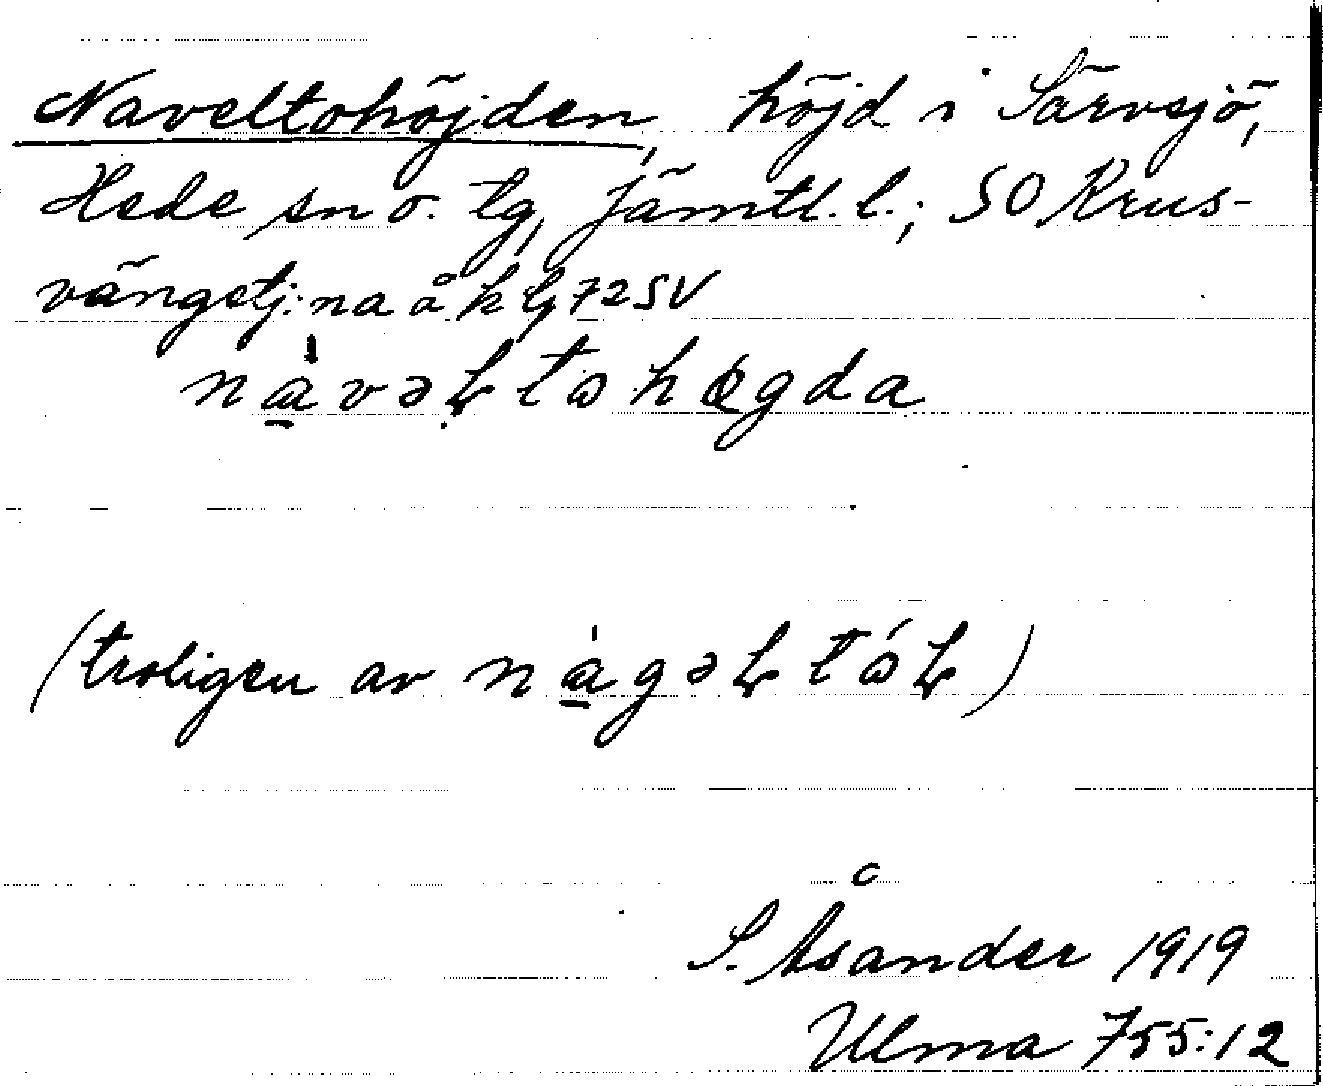 Naveltohöjden, höjd i Särvsjö,
Hede sn o. tg, Jämtl. l.; SO Krus-
vängetj:na å kbl 72SV
nàvəɫtɷhøgda
(troligen av nàgəɫtɷ́ɫ)
S. Åsander 1919
Ulma 755:12